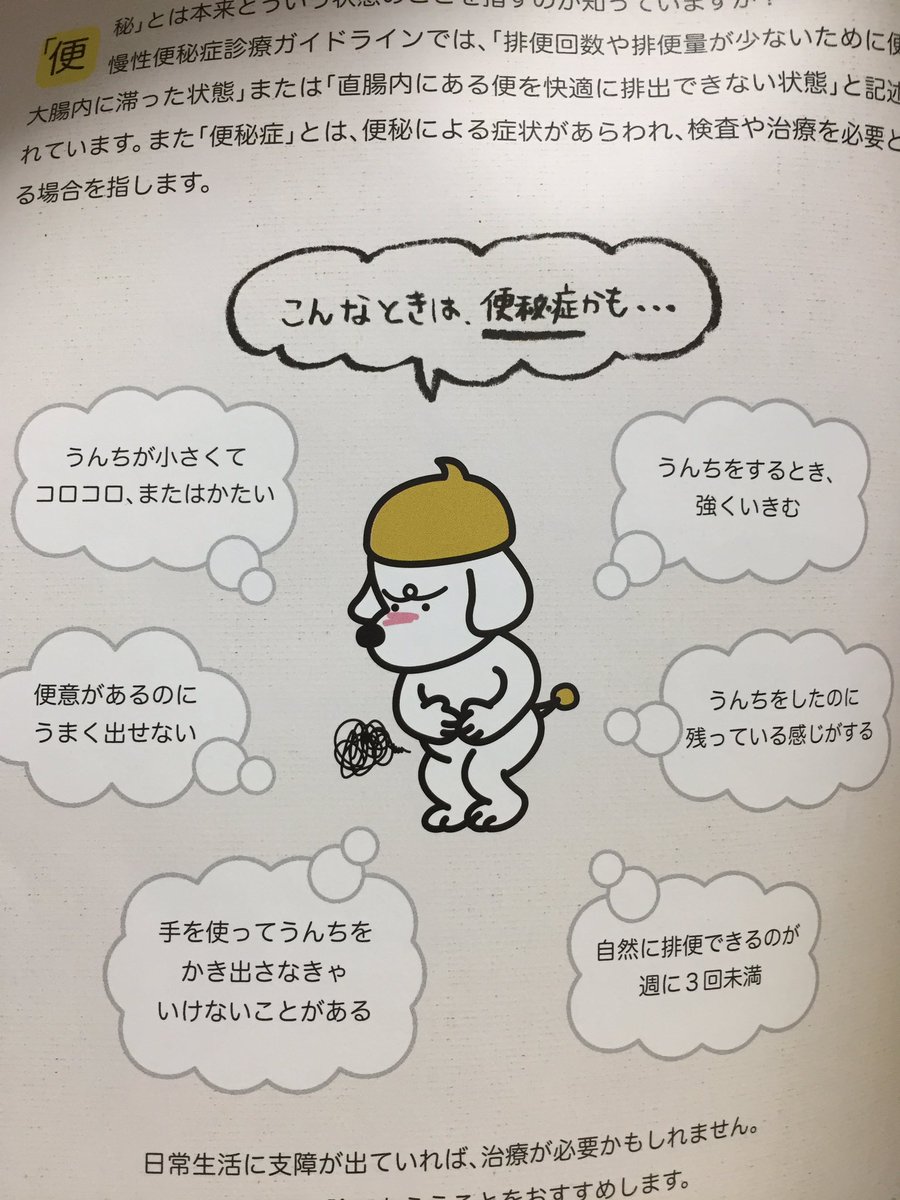 「便秘」とは本来どういう状態のことを指すのか知っていますか？
慢性便秘症診療ガイドラインでは、「排便回数や排便量が少ないために便
大腸内に滞った状態」または「直腸内にある便を快適に排出できない状態」と記述
れています。また「便秘症」とは、便秘による症状があらわれ、検査や治療を必要と
る場合を指します。
こんなときは、便秘症かも...
うんちが小さくて
コロコロ、またはかたい
うんちをするとき、
強くいきむ
便意があるのに
うまく出せない
うんちをしたのに
残っている感じがする
手を使ってうんちを
かき出さなきゃ
いけないことがある
自然に排便できるのが
週に3回未満
日常生活に支障が出ていれば、治療が必要かもしれません。
ことをおすすめします。